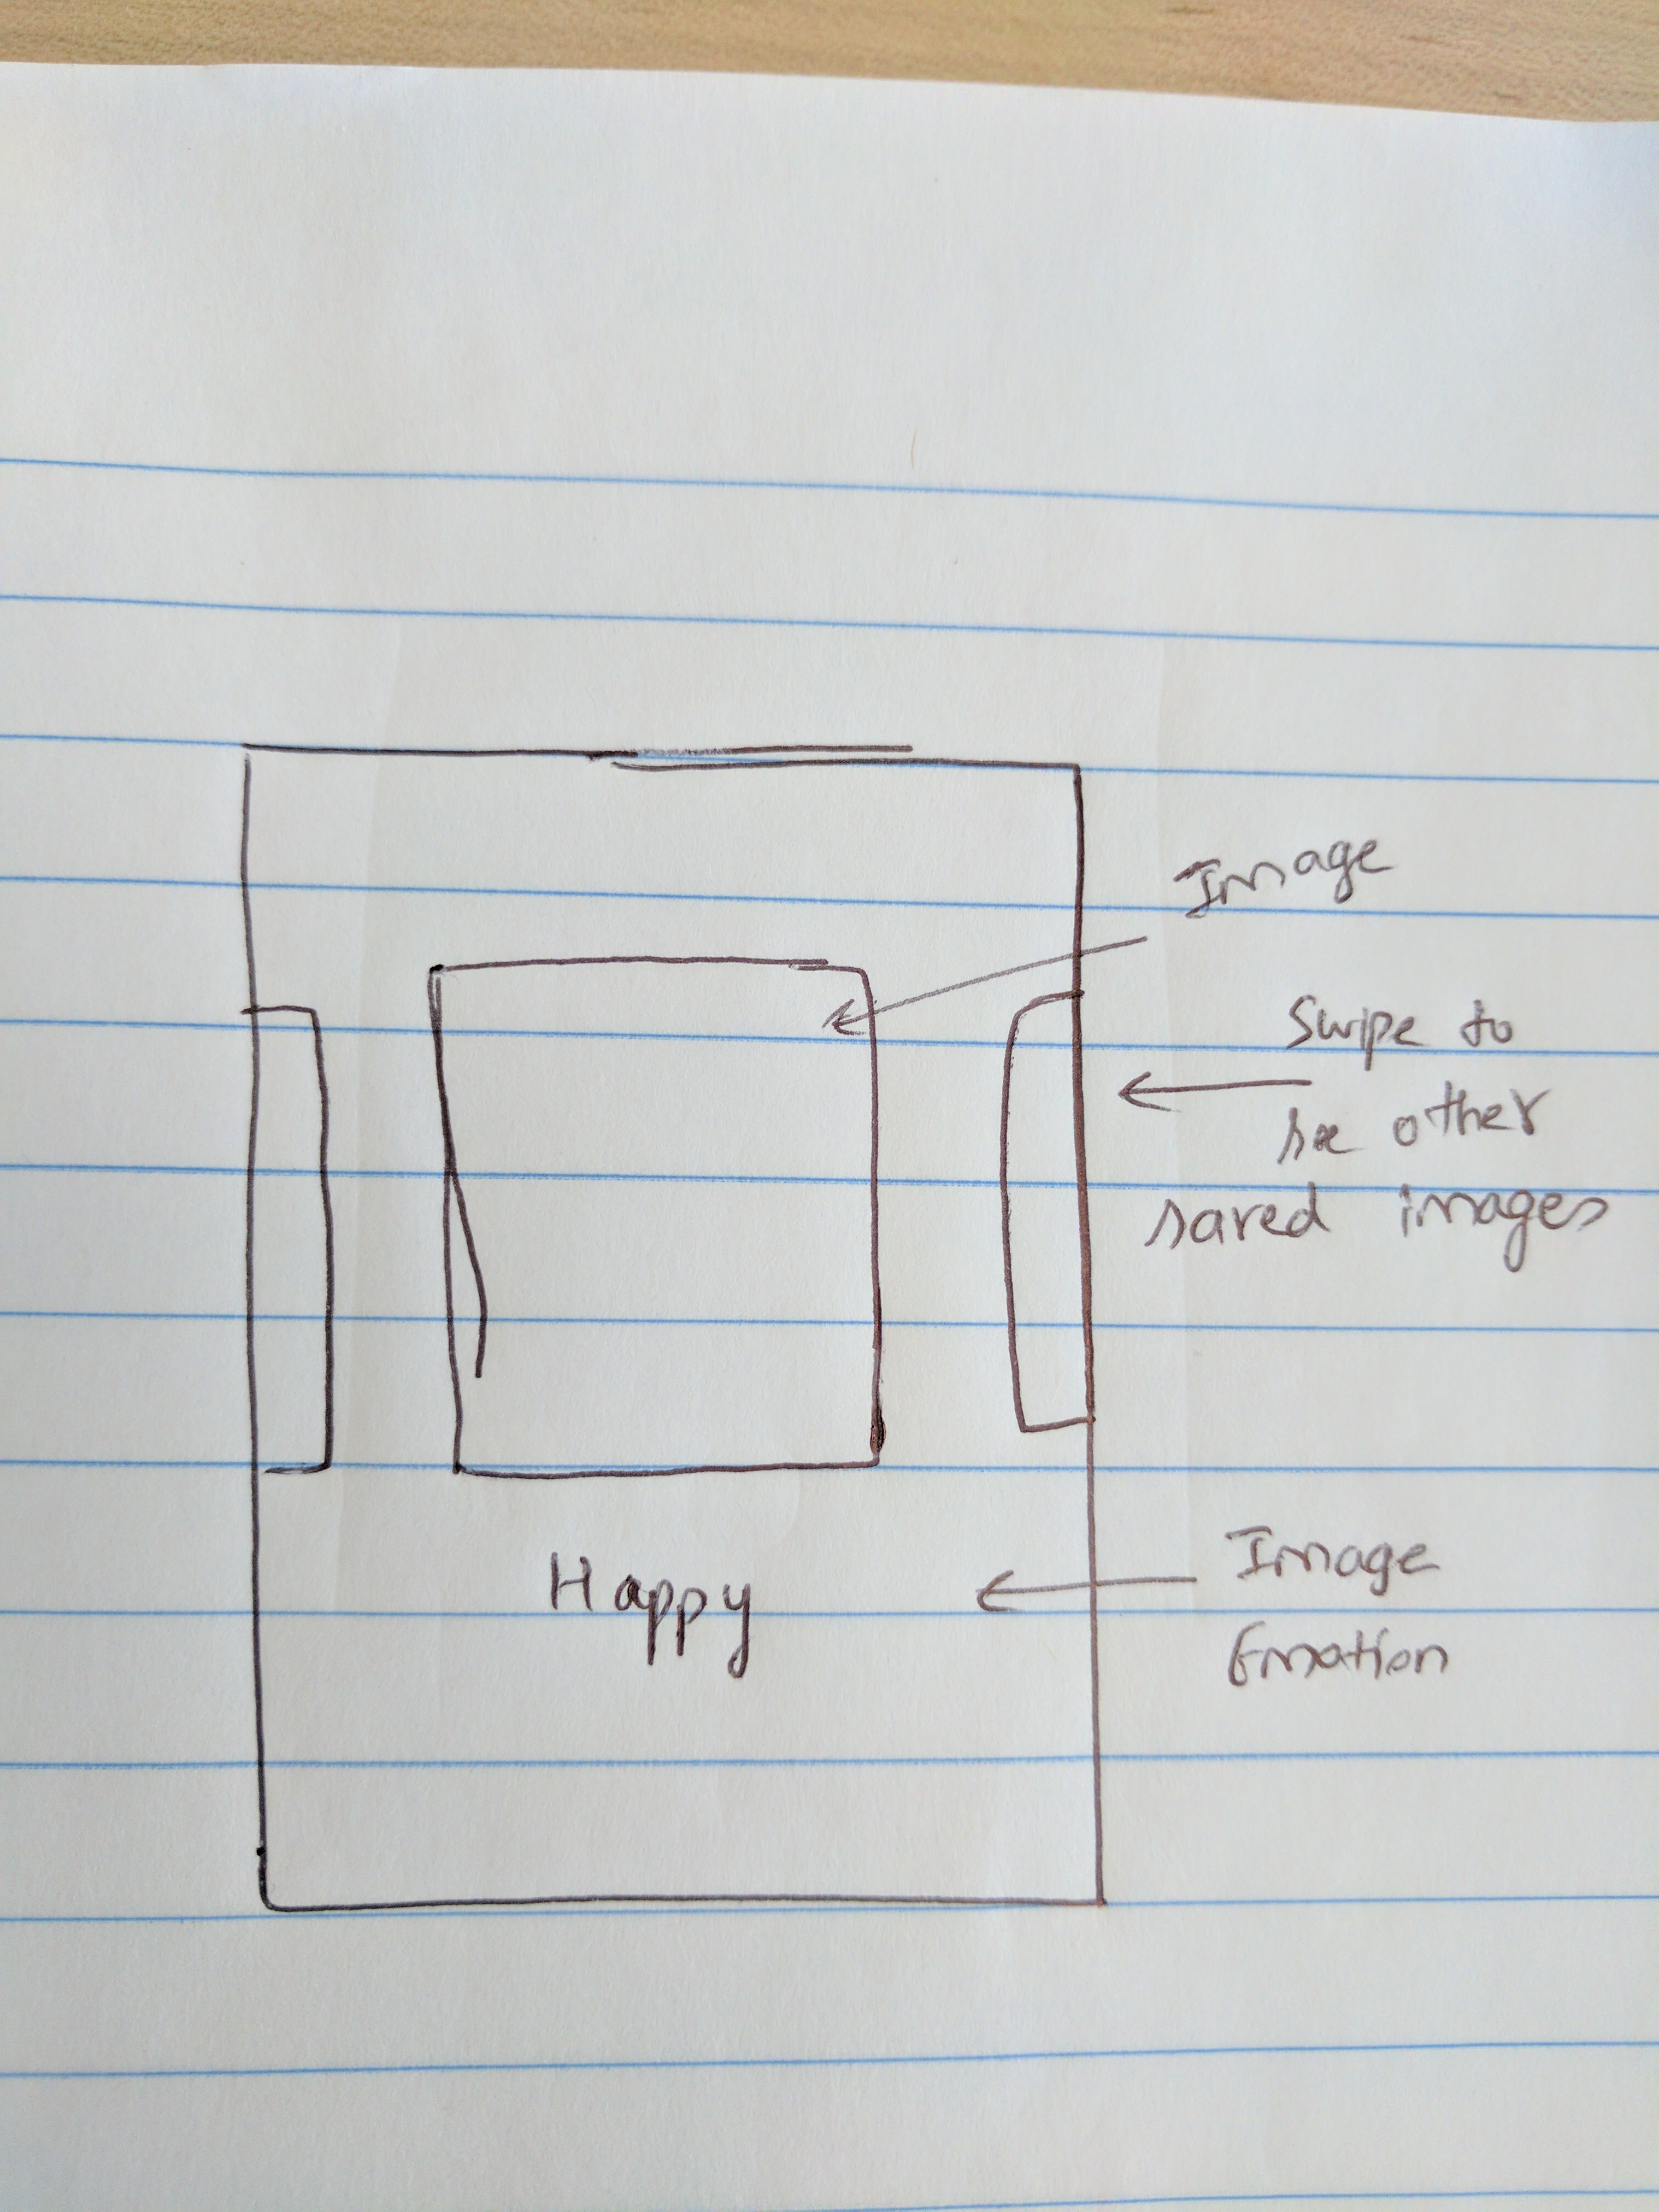 Image
Swipe to
see other
saved images
Happy
Image
Emotion